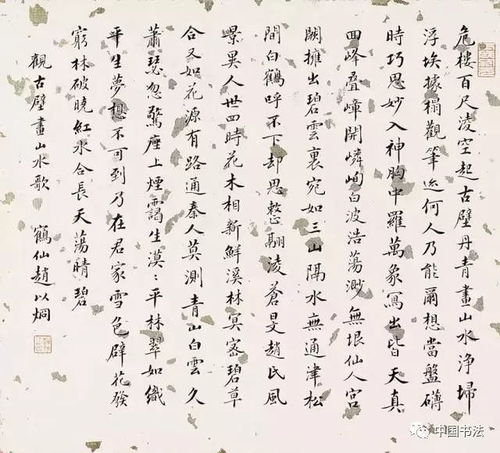 危樓百尺淩空起古壁丹青畫山水淨埽
浮埃據榻觀筆迹何人乃能爾想當盤礴
時巧思妙入神胸中羅萬象寫出皆天真
囬峰疊嶂開嶙峋白波浩蕩渺無垠仙人宮
闕擁出碧雲裏宛如三山隔水無通津松
間白鶴呼不下却思整翮淩蒼旻趙氏風
景異人世四時花木相新鮮溪林冥密碧草
合又如花源有路通秦人莫測青山白雲久
蕭瑟忽驚座上煙靄生漠〻平林翠如織
平生夢想不可到乃在君家雪色壁花發
窮林破曉紅水合長天蕩晴碧
觀古壁畫山水歌 鶴仙趙以烱
中国书法